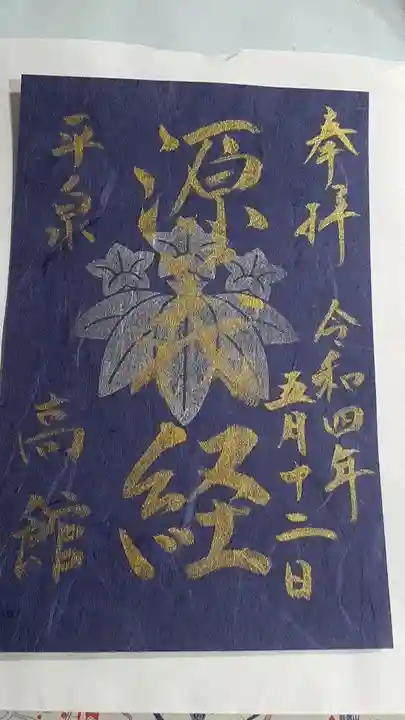 奉拝
令和四年
五月十二日
源義経
平泉
高館